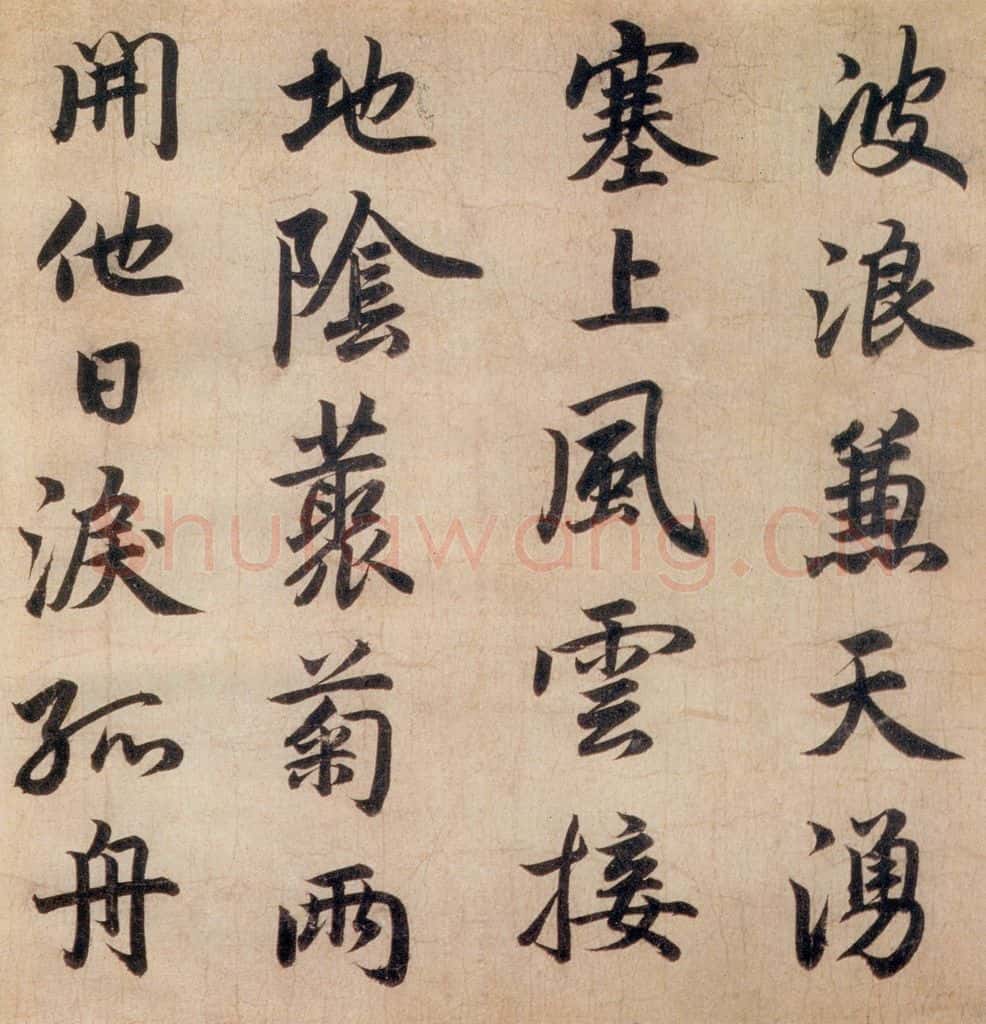 波浪蒹天湧
塞上風雲接
地陰叢菊兩
開他日淚孤舟
Shufawang.CN